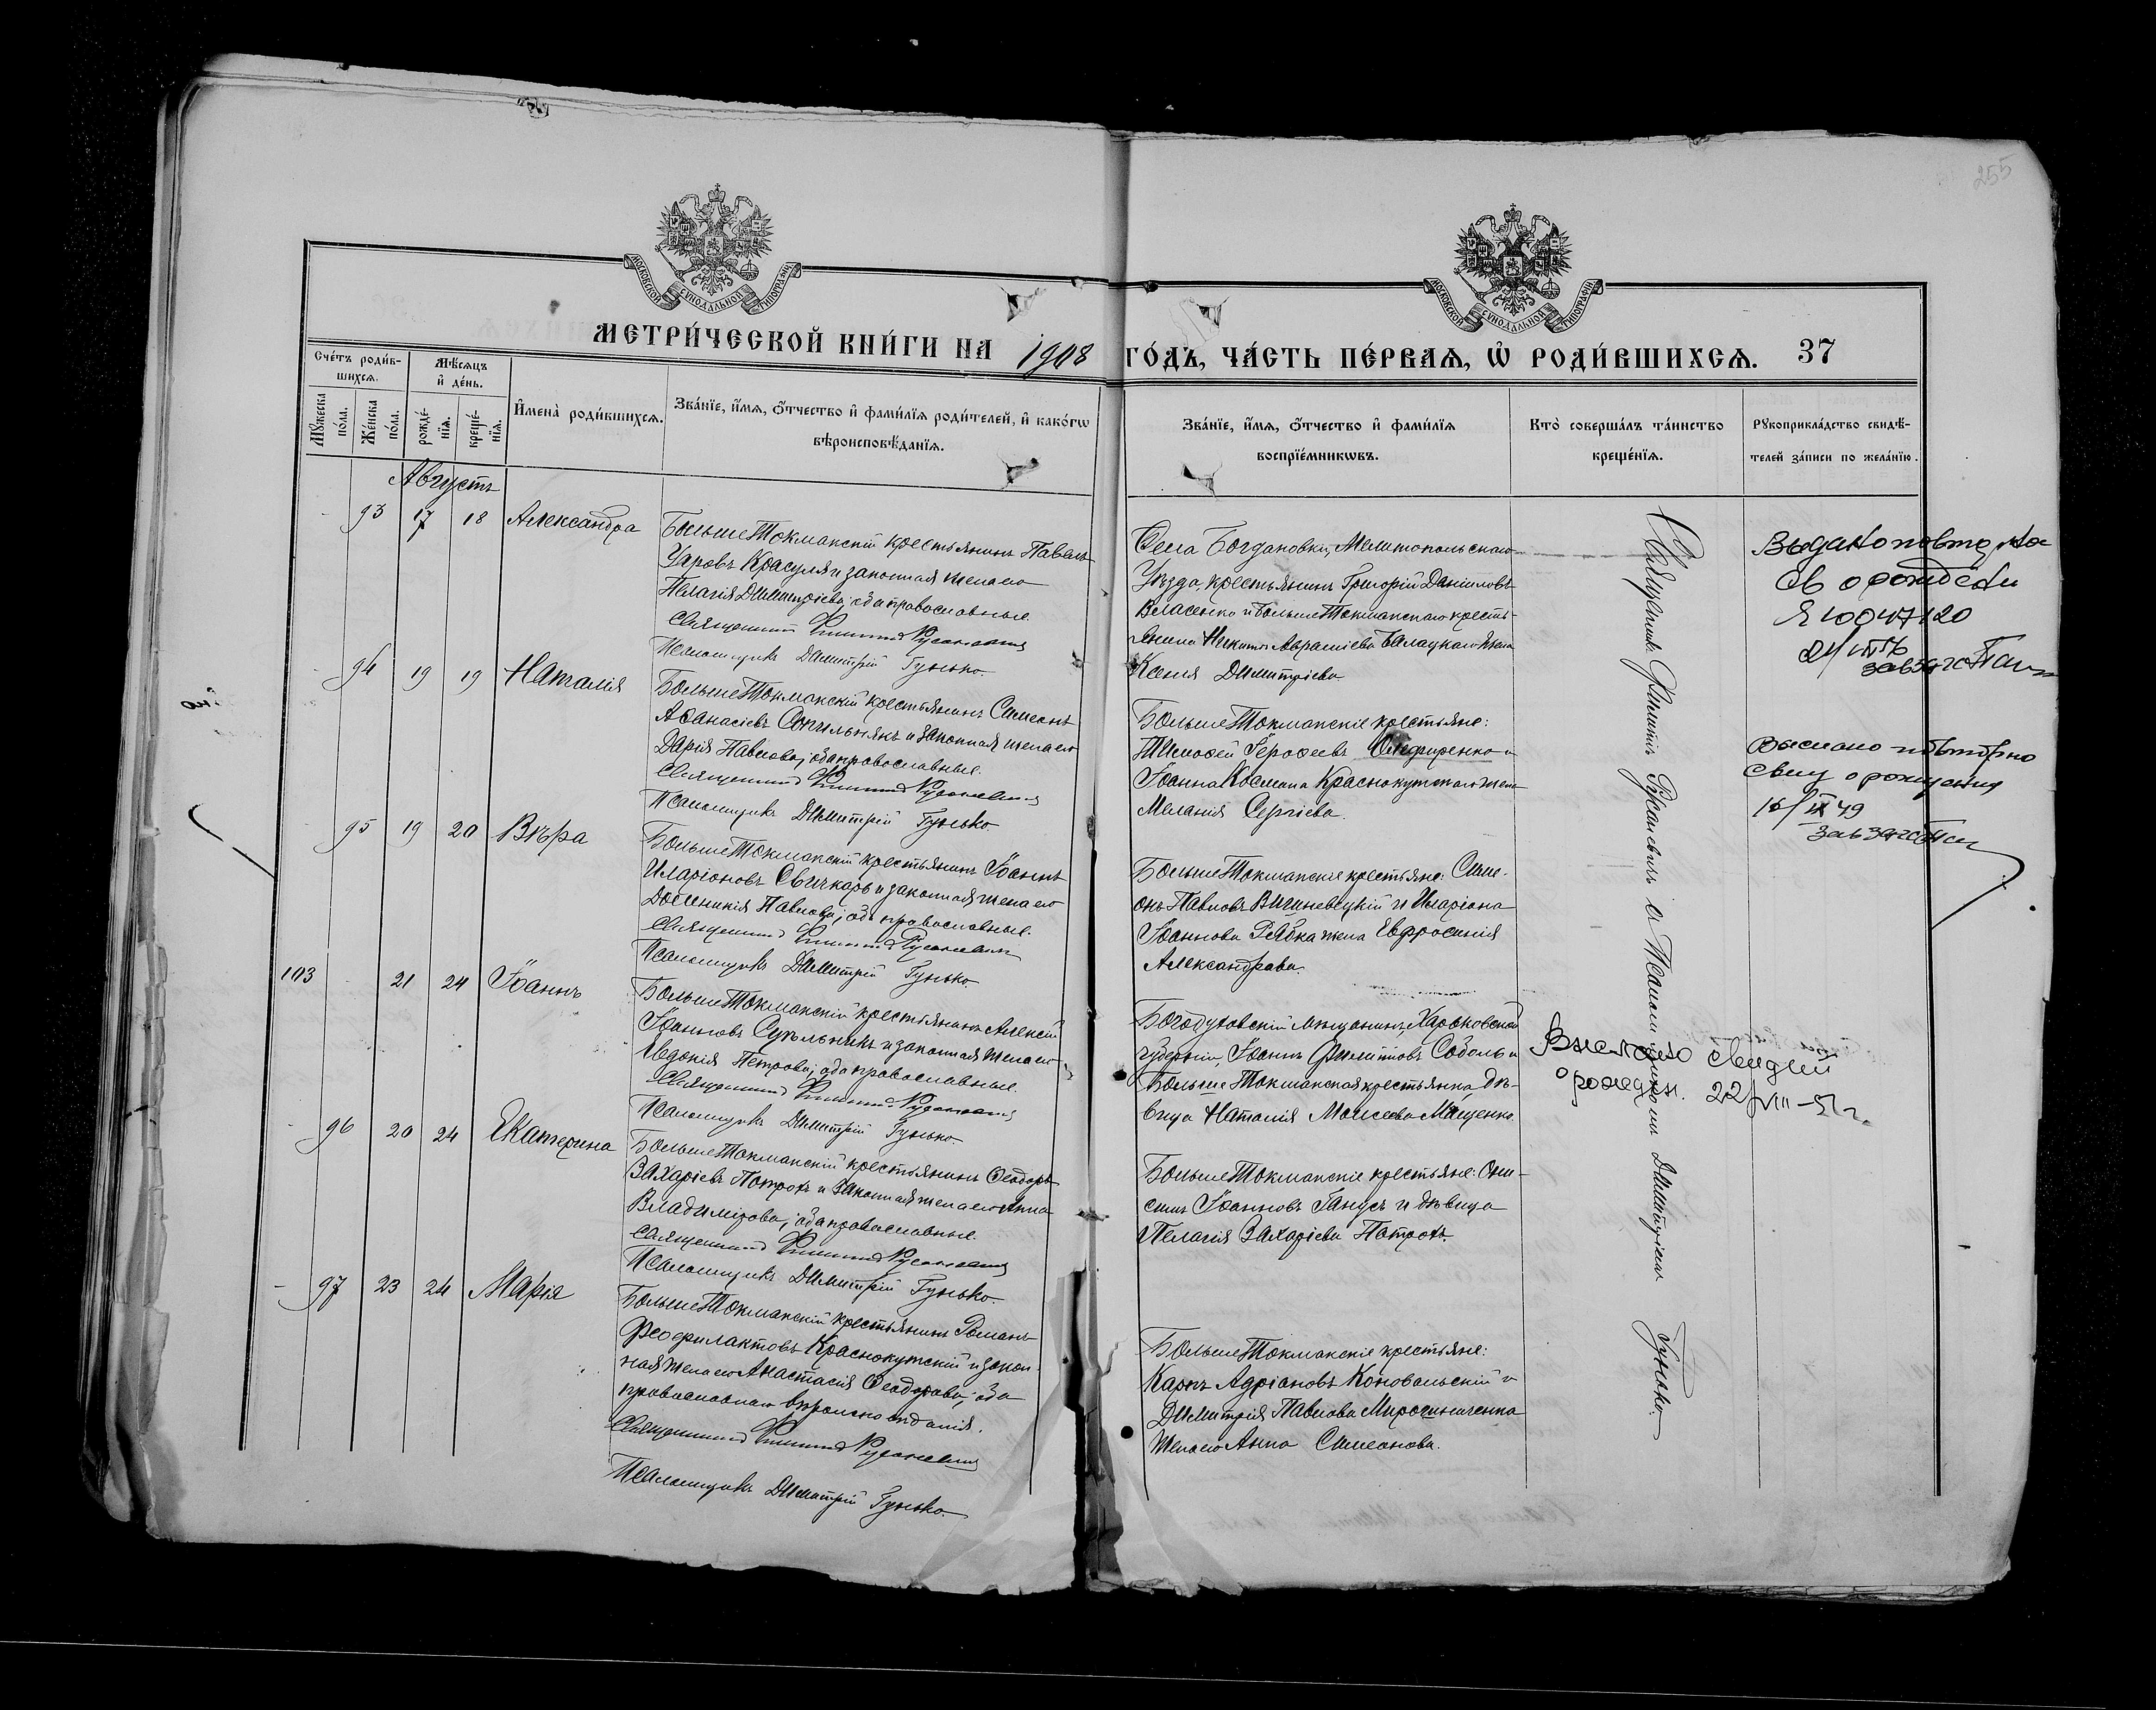 255
МОСКОВСКОЙ СѴНОДАЛЬНОЙ ТИПОГРАФІИ
МОСКОВСКОЙ СѴНОДАЛЬНОЙ ТИПОГРАФІИ
МЕТРИ́ЧЕСКОЙ КНИ́ГИ НА 1908 ГО́ДЪ, ЧА́СТЬ ПЕ́РВАѦ, Ѡ҆ РОДИ́ВШИХСѦ. 37
Сче́тъ роди́вшихсѧ.
Мꙋ́жеска по́ла.
Же́нска по́ла.
Мѣ́сѧцъ и҆ де́нь.
рожде́нїѧ.
креще́нїѧ.
И҆мена̀ роди́вшихсѧ.
Зва́нїе, и҆́мѧ, ѻ҆́тчество и҆ фами́лїѧ роди́телей, и҆ како́гѡ
вѣроисповѣ́данїѧ.
Зва́нїе, и҆́мѧ, ѻ҆́тчество и҆ фами́лїѧ
воспрїе́мникѡвъ.
Кто̀ соверша́лъ та́инство
креще́нїѧ.
Рꙋкоприкла́дство свидѣ́-
телей за́писи по жела́нїю.
Августъ
93 17 18 Александра
Больше Токмакскій крестьянинъ Павелъ
Уаровъ Красуля и законная жена его
Пелагія Димитріева; оба православные.
Священникъ Филиппъ Русаневичъ
Псаломщикъ Димитрій Гунько.
Села Богдановки, Мелитопольскаго
Уѣзда, крестьянинъ Григорій Даніиловъ
Власенко и Больше Токмакскаго кресть-
янина Никиты Аврамиева Балацкаго жена
Ксенія Димитріева
Выдано повторное
св о рождени
94 19 19 Наталія
Больше Токмакскій крестьянинъ Симеонъ
Аѳанасіевъ Сопильнякъ и законная жена его
Дарія Павлова; оба православные.
Священникъ Филиппъ Русаневичъ
Псаломщикъ Димитрій Гунько.
Больше Токмакскіе крестьяне:
Тимоѳей Іероѳеевъ Онуфриенко и
Іоанна Космина Краснокутскаго жена
Меланія Сергіева.
Выслано повторно
свид о рождения
16/IX 49
95 19 20 Вѣра
Больше Токмакскій крестьянинъ Іоаннъ
Иларіоновъ Свичкарь и законная жена его
Домникія Павлова; оба православные.
Священникъ Филиппъ Русаневичъ
Псаломщикъ Димитрій Гунько.
Больше Токмакскіе крестьяне: Симе-
онъ Павловъ Вишневецкій и Иларіона
Іоаннова Рябка жена Евфросинія
Александрова.
103 21 24 Іоаннъ
Больше Токмакскій крестьянинъ Алексій
Іоанновъ Сукъльникъ и законная жена его
Евдокія Петрова; оба православные.
Священникъ Филиппъ Русаневичъ
Псаломщикъ Димитрій Гунько.
Богодуховскій мѣщанинъ, Харьковской
губерніи, Іоаннъ Филипповъ Соболь и
Больше Токмакская крестьянка дѣ-
вица Наталія Моисеева Маценко.
Выслано свидет
о рожден. 22/VIII-51 г.
96 20 24 Екатерина
Больше Токмакскій крестьянинъ Ѳеодоръ
Захаріевъ Потрохъ и законная жена его Анна
Владимірова; оба православные.
Священникъ Филиппъ Русаневичъ
Псаломщикъ Димитрій Гунько.
Больше Токмакскіе крестьяне: Они-
симъ Іоанновъ Ганусъ и дѣвица
Пелагія Захаріева Потрохъ.
97 23 24 Марія
Больше Токмакскій крестьянинъ Романъ
Ѳеофилактовъ Краснокутскій и закон-
ная жена его Анастасія Ѳеодорова; оба
православнаго вѣроисповѣданія.
Священникъ Филиппъ Русаневичъ
Псаломщикъ Димитрій Гунько.
Больше Токмакскіе крестьяне:
Карпъ Адріановъ Коновальскій и
Димитрія Павлова Мирошниченка
жена его Анна Симеонова.
Священникъ Филиппъ Русаневичъ съ Псаломщикомъ Димитріемъ Гунько.